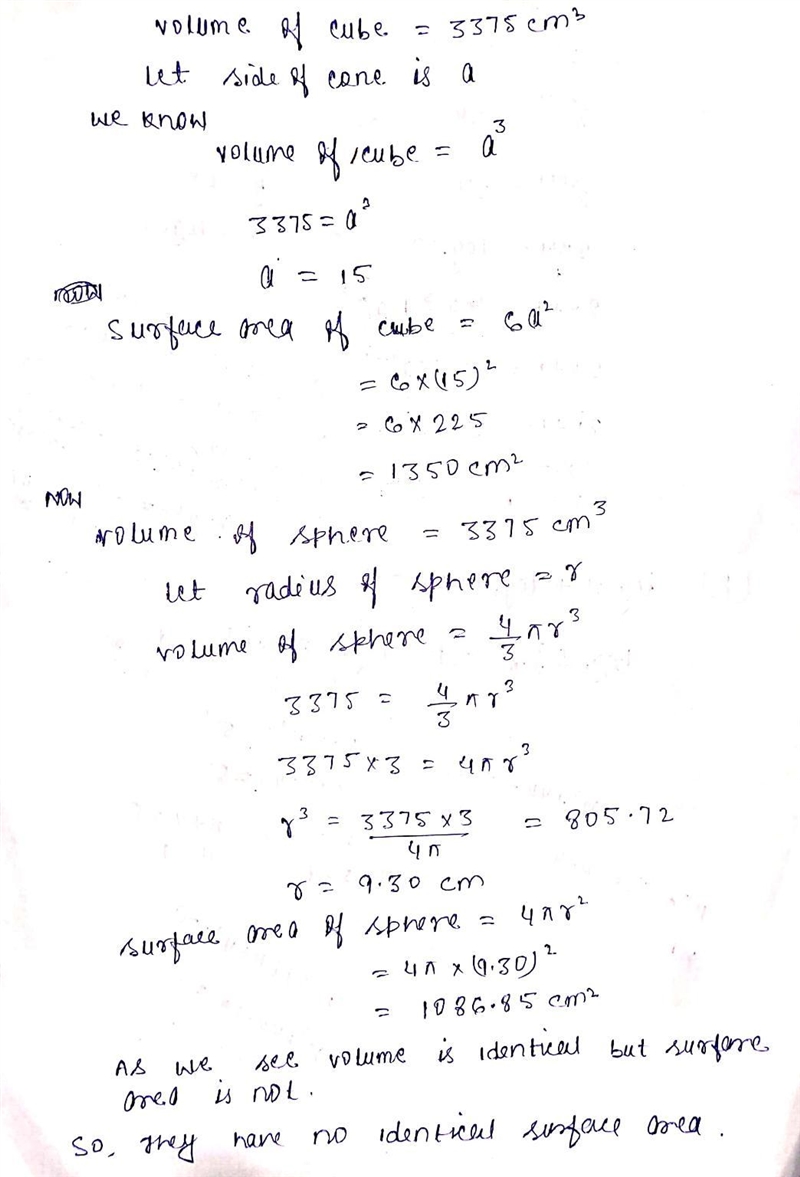 volume of cube = 3375 cm³
Let side of cone is a
we know
volume of cube = a³
3375 = a³
a = 15
Surface area of cube = 6a²
= 6×(15)²
= 6×225
= 1350 cm²
NOW
volume of sphere = 3375 cm³
Let radius of sphere = r
volume of sphere = 4/3 πr³
3375 = 4/3 πr³
3375×3 = 4πr³
r³ = 3375×3/4π = 805.72
r = 9.30 cm
surface area of sphere = 4πr²
= 4π×(9.30)²
= 1086.85 cm²
As we see volume is identical but surface
area is not.
So, they have no identical surface area.